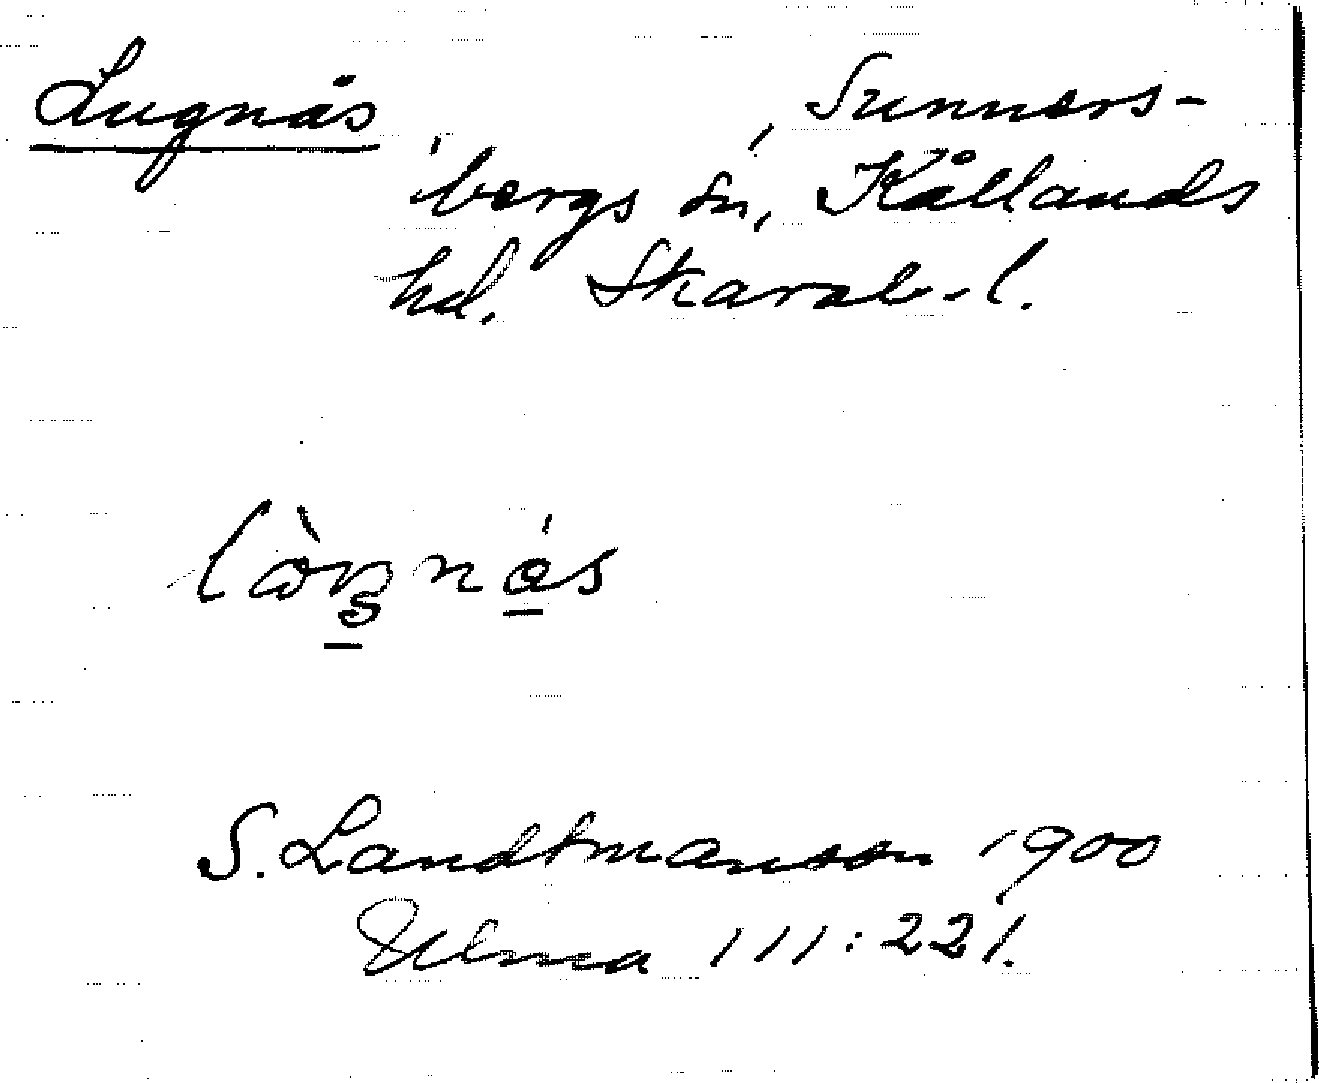 Lugnås, Sunners-
bergs sn, Kållands
hd. Skarab. l.
S. Landtmanson 1900
Ulma 111:221.